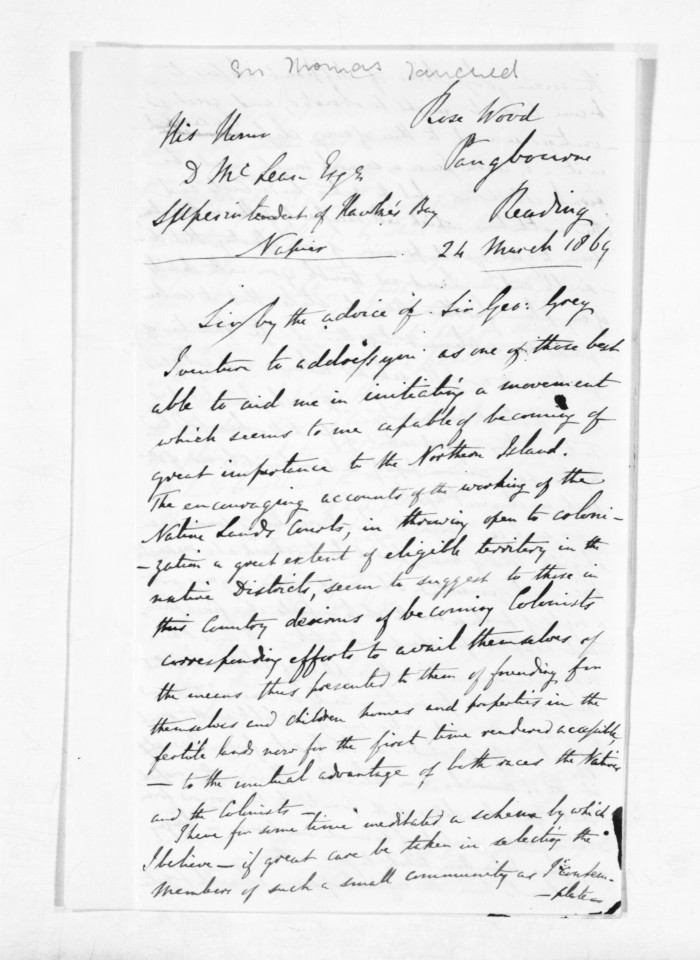 Sir Thomas Tancred
Rose Wood
Pangbourne
Reading
24 March 1869
His Honor
D McLean Esqre
Superintendent of Hawke's Bay
Napier
Sir, by the advice of Sir Geo: Grey
I venture to address you as one of those best
able to aid me in initiating a movement
which seems to me capable of becoming of
great importance to the Northern Island.
The encouraging accounts of the working of the
Native Lands Courts, in throwing open to coloni-
-zation a great extent of eligible territory in the
native Districts, seem to suggest to those in
this Country desirous of becoming Colonists
corresponding efforts to avail themselves of
the means thus presented to them of founding for
themselves and children homes and properties in the
fertile lands now for the first time rendered accessible,
- to the mutual advantage of both races the Natives
and the Colonists -
I have for some time meditated a scheme by which
I believe - if great care be taken in selecting the
members of such a small community as I contem-
-plate